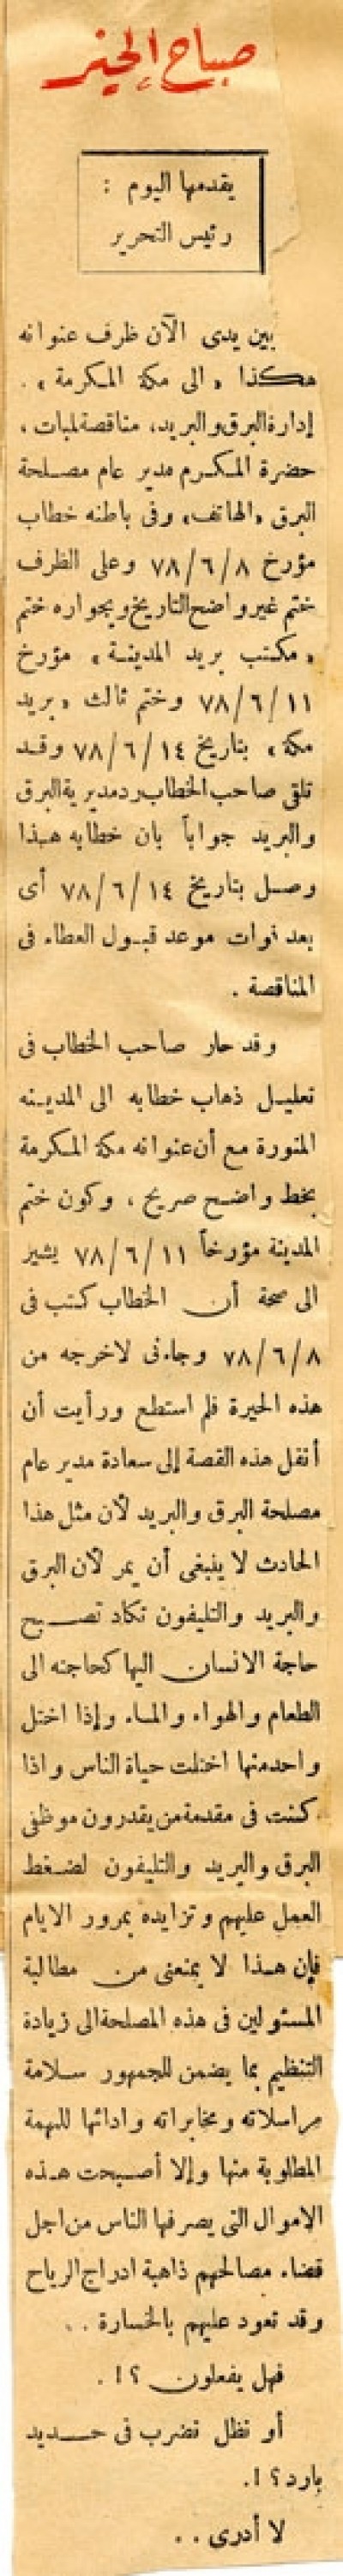 صباح الخير
يقدمها اليوم :
رئيس التحرير
بين يدى الآن ظرف عنوانه
هكذا « الى مكة المكرمة » .
إدارة البرق والبريد، مناقصة لمبات ،
حضرة المكرم مدير عام مصلحة
البرق والهاتف، وفى باطنه خطاب
مؤرخ ٧٨/٦/٨ وعلى الظرف
ختم غير واضح التاريخ وبجواره ختم
« مكتب بريد المدينة » مؤرخ
٧٨/٦/١١ وختم ثالث « بريد
مكة » بتاريخ ٧٨/٦/١٤ وقد
تلقى صاحب الخطاب رد مديرية البرق
والبريد جواباً بان خطابه هذا
وصل بتاريخ ٧٨/٦/١٤ أى
بعد فوات موعد قبول العطاء فى
المناقصة .
وقد حار صاحب الخطاب فى
تعليل ذهاب خطابه الى المدينه
المنورة مع أن عنوانه مكة المكرمة
بخط واضح صريح ، وكون ختم
المدينة مؤرخاً ٧٨/٦/١١ يشير
الى صحة أن الخطاب كتب فى
٧٨/٦/٨ وجاءنى لاخرجه من
هذه الحيرة فلم استطع ورأيت أن
أنقل هذه القصة إلى سعادة مدير عام
مصلحة البرق والبريد لأن مثل هذا
الحادث لا ينبغى أن يمر لأن البرق
والبريد والتليفون تكاد تصبح
حاجة الانسان اليها كحاجته الى
الطعام والهواء والماء وإذا اختل
واحد منها اختلت حياة الناس واذا
كنت فى مقدمة من يقدرون موظفى
البرق والبريد والتليفون لضغط
العمل عليهم وتزايده بمرور الايام
فإن هذا لا يمنعنى من مطالبة
المسئولين فى هذه المصلحة الى زيادة
التنظيم بما يضمن للجمهور سلامة
مراسلاته ومخابراته وادائها للمهمة
المطلوبة منها وإلا أصبحت هذه
الاموال التى يصرفها الناس من اجل
قضاء مصالحهم ذاهبة ادراج الرياح
وقد تعود عليهم بالخسارة . .
فهل يفعلون ؟ ! .
أو نظل نضرب فى حديد
بارد ؟ ! .
لا أدرى . .